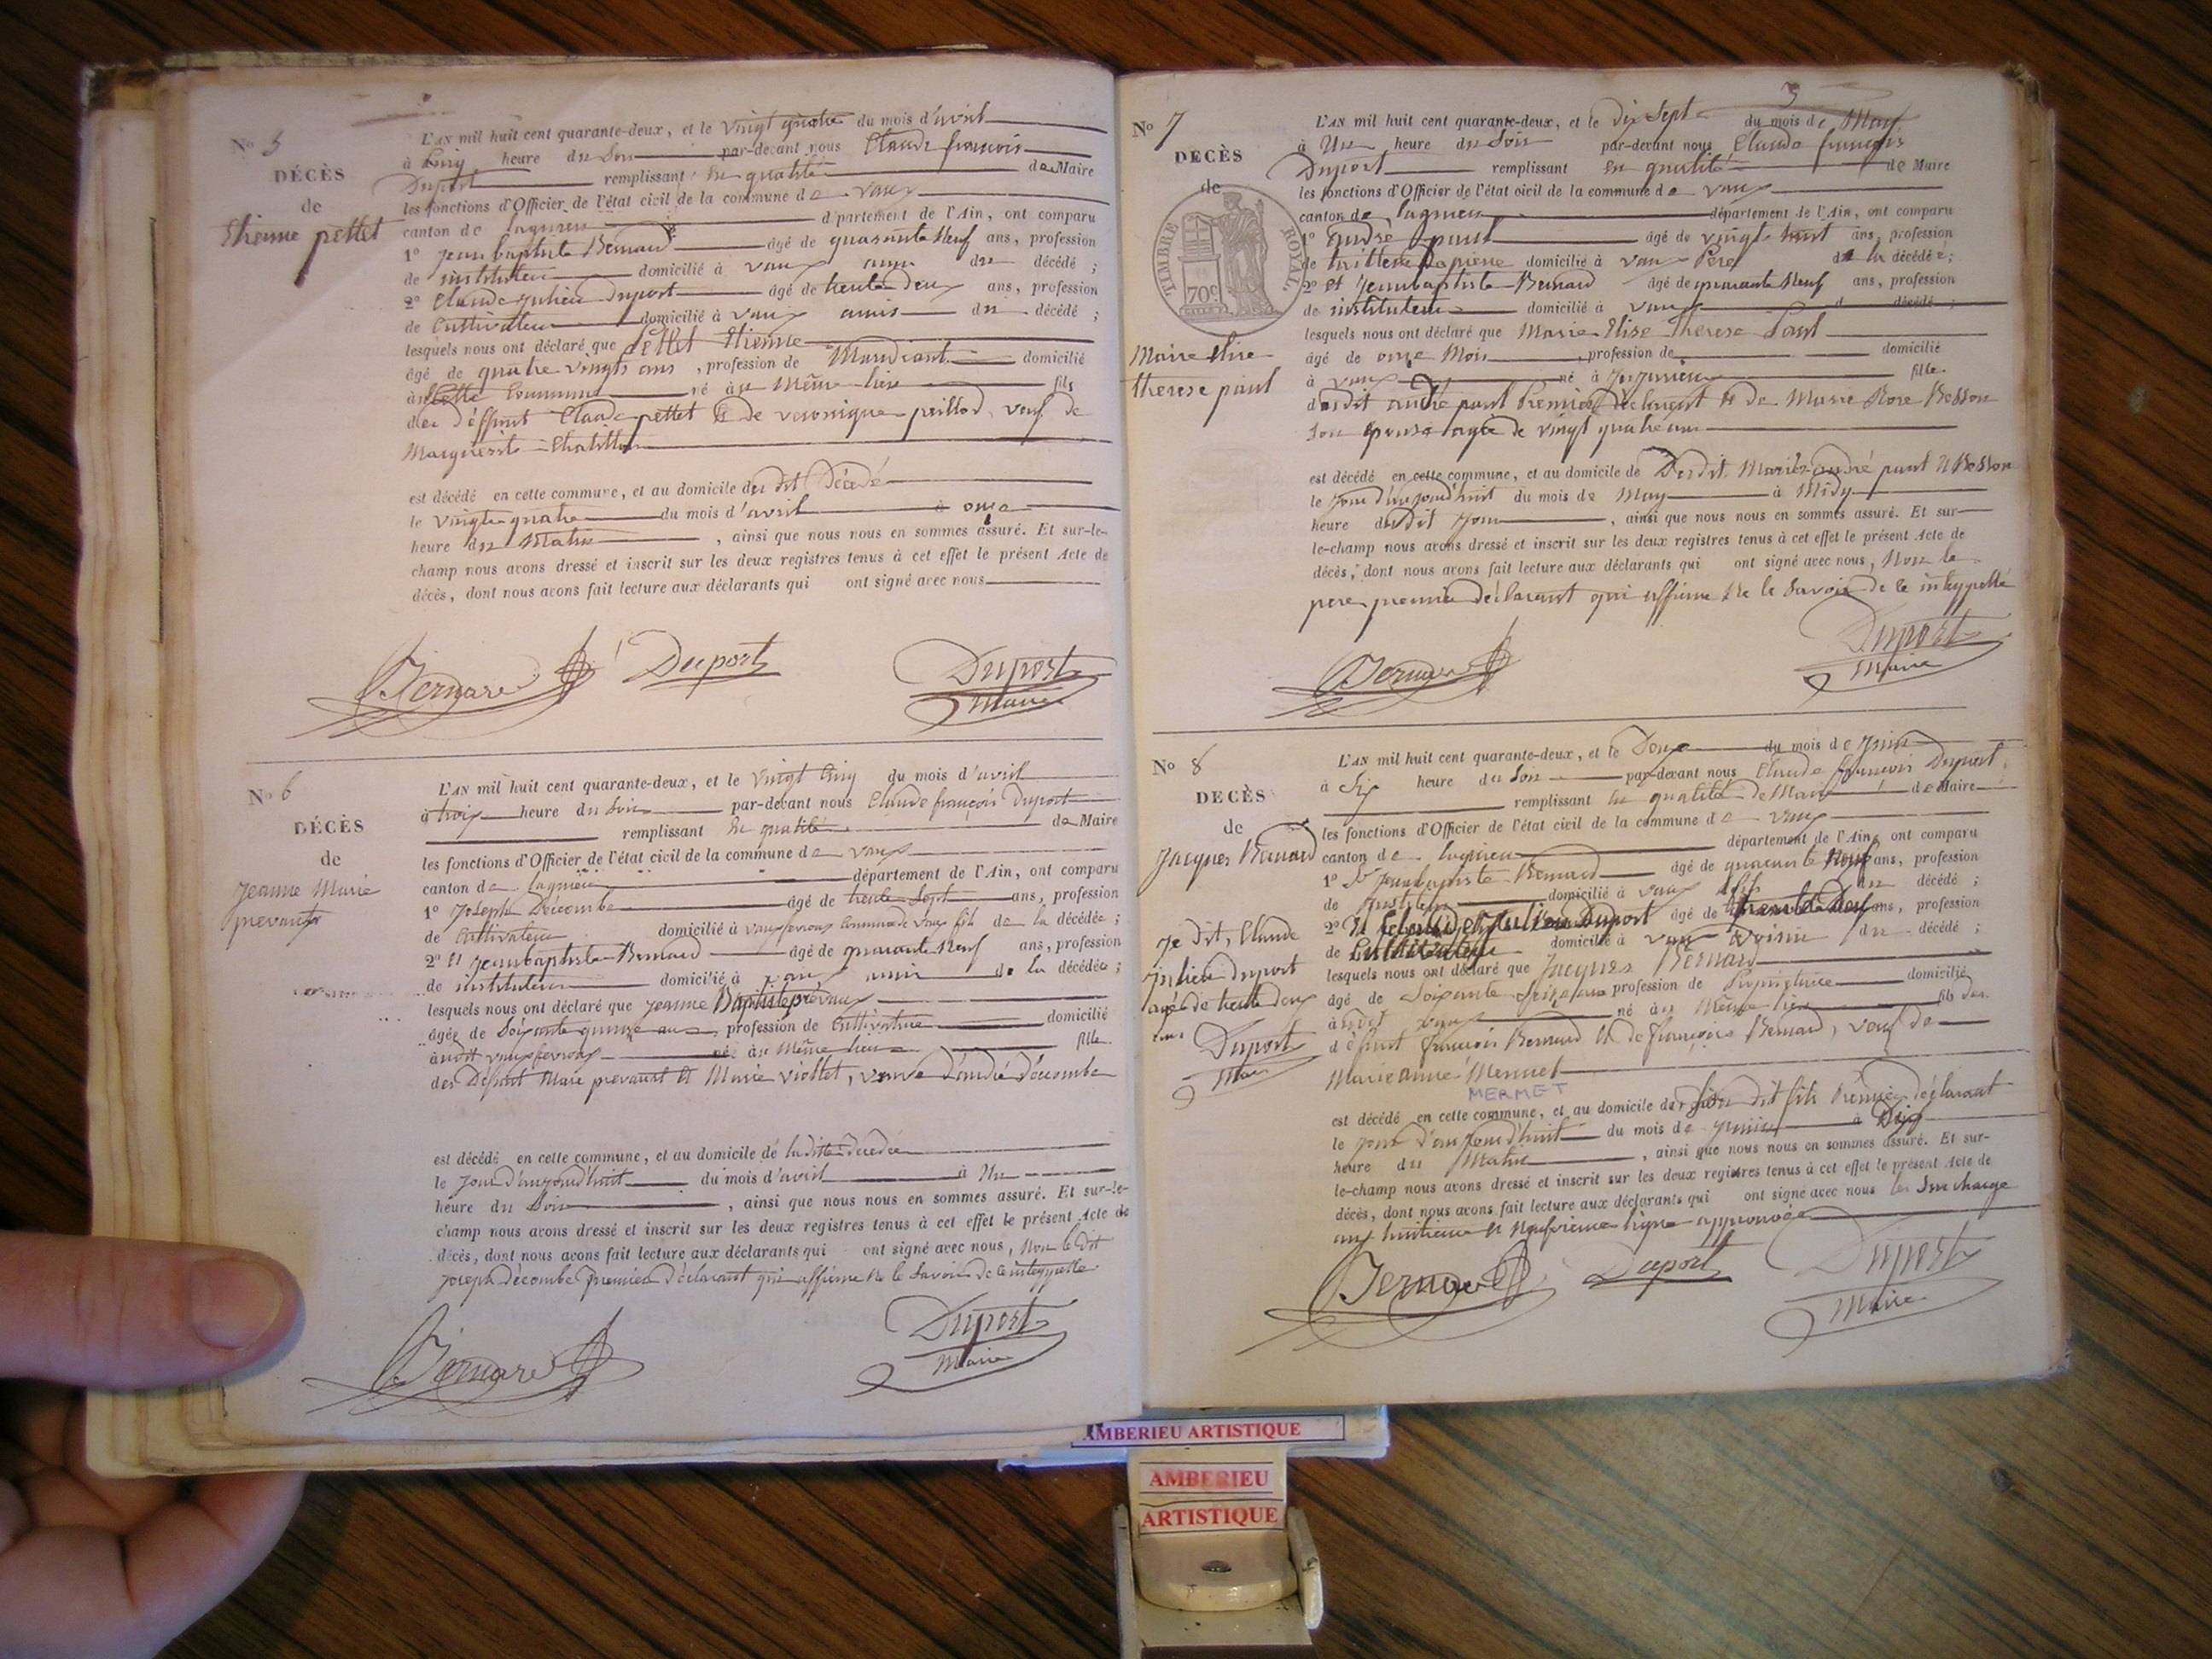 No 5
DÉCÈS
de
Etienne pettet
L'AN mil huit cent quarante-deux, et le vingt quatre du mois d'avril
à cinq heure du soir par-devant nous Claude françois
Duport remplissant en qualité de Maire
les fonctions d'Officier de l'état civil de la commune de vaux
canton de Lagnieu département de l'Ain, ont comparu
1° jean baptiste Bernard âgé de quarante Neuf ans, profession
de instituteur domicilié à vaux ami du décédé ;
2° Claude julien Duport âgé de trente deux ans, profession
de Cultivateur domicilié à vaux amis du décédé ;
lesquels nous ont déclaré que Pettet Etienne
âgé de quatre vingts ans, profession de Mandiant domicilié
à cette Commune né à Même lieu fils
de déffunt Claude pettet et de veronique peillod, veuf de
Marguerite Chatillon
est décédé en cette commune, et au domicile du dit Décédé
le vingt quatre du mois d'avril à onze
heure du Matin, ainsi que nous nous en sommes assuré. Et sur-le-
champ nous avons dressé et inscrit sur les deux registres tenus à cet effet le présent Acte de
décès, dont nous avons fait lecture aux déclarants qui ont signé avec nous
Bernard Duport Duport
Maire
No 6
DÉCÈS
de
Jeanne Marie
prevaux
L'AN mil huit cent quarante-deux, et le vingt Cinq du mois d'avril
à trois heure du soir par-devant nous Claude françois Duport
remplissant en qualité de Maire
les fonctions d'Officier de l'état civil de la commune de vaux
canton de Lagnieu département de l'Ain, ont comparu
1° Joseph Décombe âgé de trente Sept ans, profession
de Cultivateur domicilié à vauxfevroux Commune de vaux fils de la décédée ;
2° Et jeanbaptiste Bernard âgé de quarante Neuf ans, profession
de instituteur domicilié à vaux amis de la décédée ;
lesquels nous ont déclaré que jeanne Baptiste prévaux
âgée de Soixante quinze ans, profession de Cultivatrice domicilié
àudit vauxfevroux née au Même lieu fille
des Défunt Marc prevaust et Marie viollet, veuve d'andré décombe
est décédé en cette commune, et au domicile de la ditte décédée
le jour d'aujourd'huit du mois d'avril à Une
heure du Soir, ainsi que nous nous en sommes assuré. Et sur-le-
champ nous avons dressé et inscrit sur les deux registres tenus à cet effet le présent Acte de
décès, dont nous avons fait lecture aux déclarants qui ont signé avec nous, Non le dit
joseph décombe premier déclarant qui affirme Ne le Savoir de ce inteyppelle
Bernard Duport
Maire
3
No 7
DECÈS
de
TIMBRE ROYAL
70c
Marie Elise
therese paul
L'AN mil huit cent quarante-deux, et le dix Sept du mois de May
à Une heure du Soir par-devant nous Claude françois
Duport remplissant en qualité de Maire
les fonctions d'Officier de l'état civil de la commune de vaux
canton de Lagnieu département de l'Ain, ont comparu
1° André paul âgé de vingt huit ans, profession
de tailleur Dapierre domicilié à vaux Père de la décédée ;
2° Et jeanbaptiste Bernard âgé de quarante Neuf ans, profession
de instituteur domicilié à vaux d décédé ;
lesquels nous ont déclaré que Marie Elise therese Paul
âgé de onze Mois, profession de domicilié
à vaux né à Jujurieux fille
dudit andré paul Premier déclarant et de Marie Rose Besson
Son Epouse agée de vingt quatre ans
est décédé en cette commune, et au domicile de Desdit Mariés andré paul et Besson
le jour d'aujourd'huit du mois de May à Midy
heure dudit jour, ainsi que nous nous en sommes assuré. Et sur-
le-champ nous avons dressé et inscrit sur les deux registres tenus à cet effet le présent Acte de
décès, dont nous avons fait lecture aux déclarants qui ont signé avec nous, Non le
pere premier déclarant qui affirme Ne le Savoir de ce inteyppellé
Bernard Duport
Maire
No 8
DECÈS
de
Jacques Bernard
je dit, Claude
julien duport
agé de trente deux
ans
Duport
Maire
L'AN mil huit cent quarante-deux, et le Douze du mois de juin
à Six heure du Soir par-devant nous Claude françois Duport
remplissant en qualité de Maire de Maire
les fonctions d'Officier de l'état civil de la commune de vaux
canton de Lagnieu département de l'Ain, ont comparu
1° Sr jeanbaptiste Bernard âgé de quarante Neuf ans, profession
de Instituteur domicilié à vaux fils du décédé ;
2° Et Claude julien Duport âgé de trente Deux ans, profession
de Cultivateur domicilié à vaux Voisin du décédé ;
lesquels nous ont déclaré que Jacques Bernard
âgé de Soixante Seize ans profession de Propriétaire domicilié
àudit vaux né au Même lieu fils des
défunt françois Bernard et de françoise Bernard, veuf de
Marie anne Mermet
MERMET
est décédé en cette commune, et au domicile de Son dit fils Premier déclarant
le jour d'aujourd'huit du mois de juin à Dix
heure du Matin, ainsi que nous nous en sommes assuré. Et sur-
le-champ nous avons dressé et inscrit sur les deux registres tenus à cet effet le présent Acte de
décès, dont nous avons fait lecture aux déclarants qui ont signé avec nous la Surcharge
aux huitieme et Neufvieme ligne approuvée
Bernard Duport Duport
Maire
AMBERIEU ARTISTIQUE
AMBERIEU
ARTISTIQUE